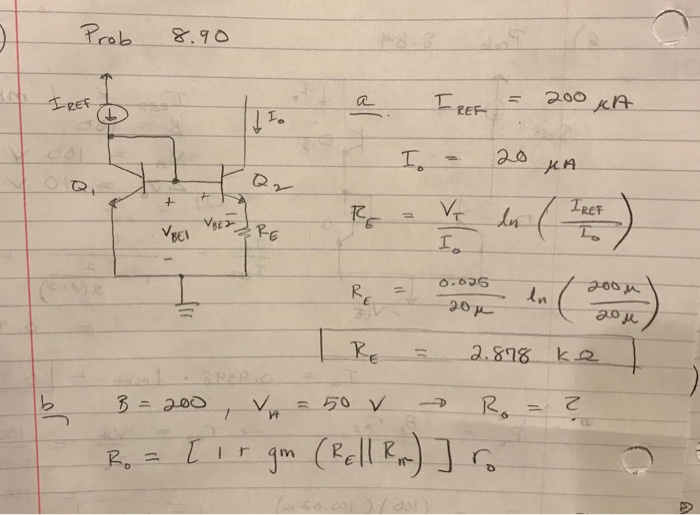 Prob 8.90
I_REF
I_o
Q_1
Q_2
+
V_BE1
-
+
V_BE2
-
R_E
a. I_REF = 200 μA
I_o = 20 μA
R_E = V_T / I_o ln ( I_REF / I_o )
R_E = 0.025 / 20μ ln ( 200μ / 20μ )
R_E = 2.878 kΩ
b B = 200 , V_A = 50 V → R_o = ?
R_o = [ 1 + gm (R_E || R_π) ] r_o